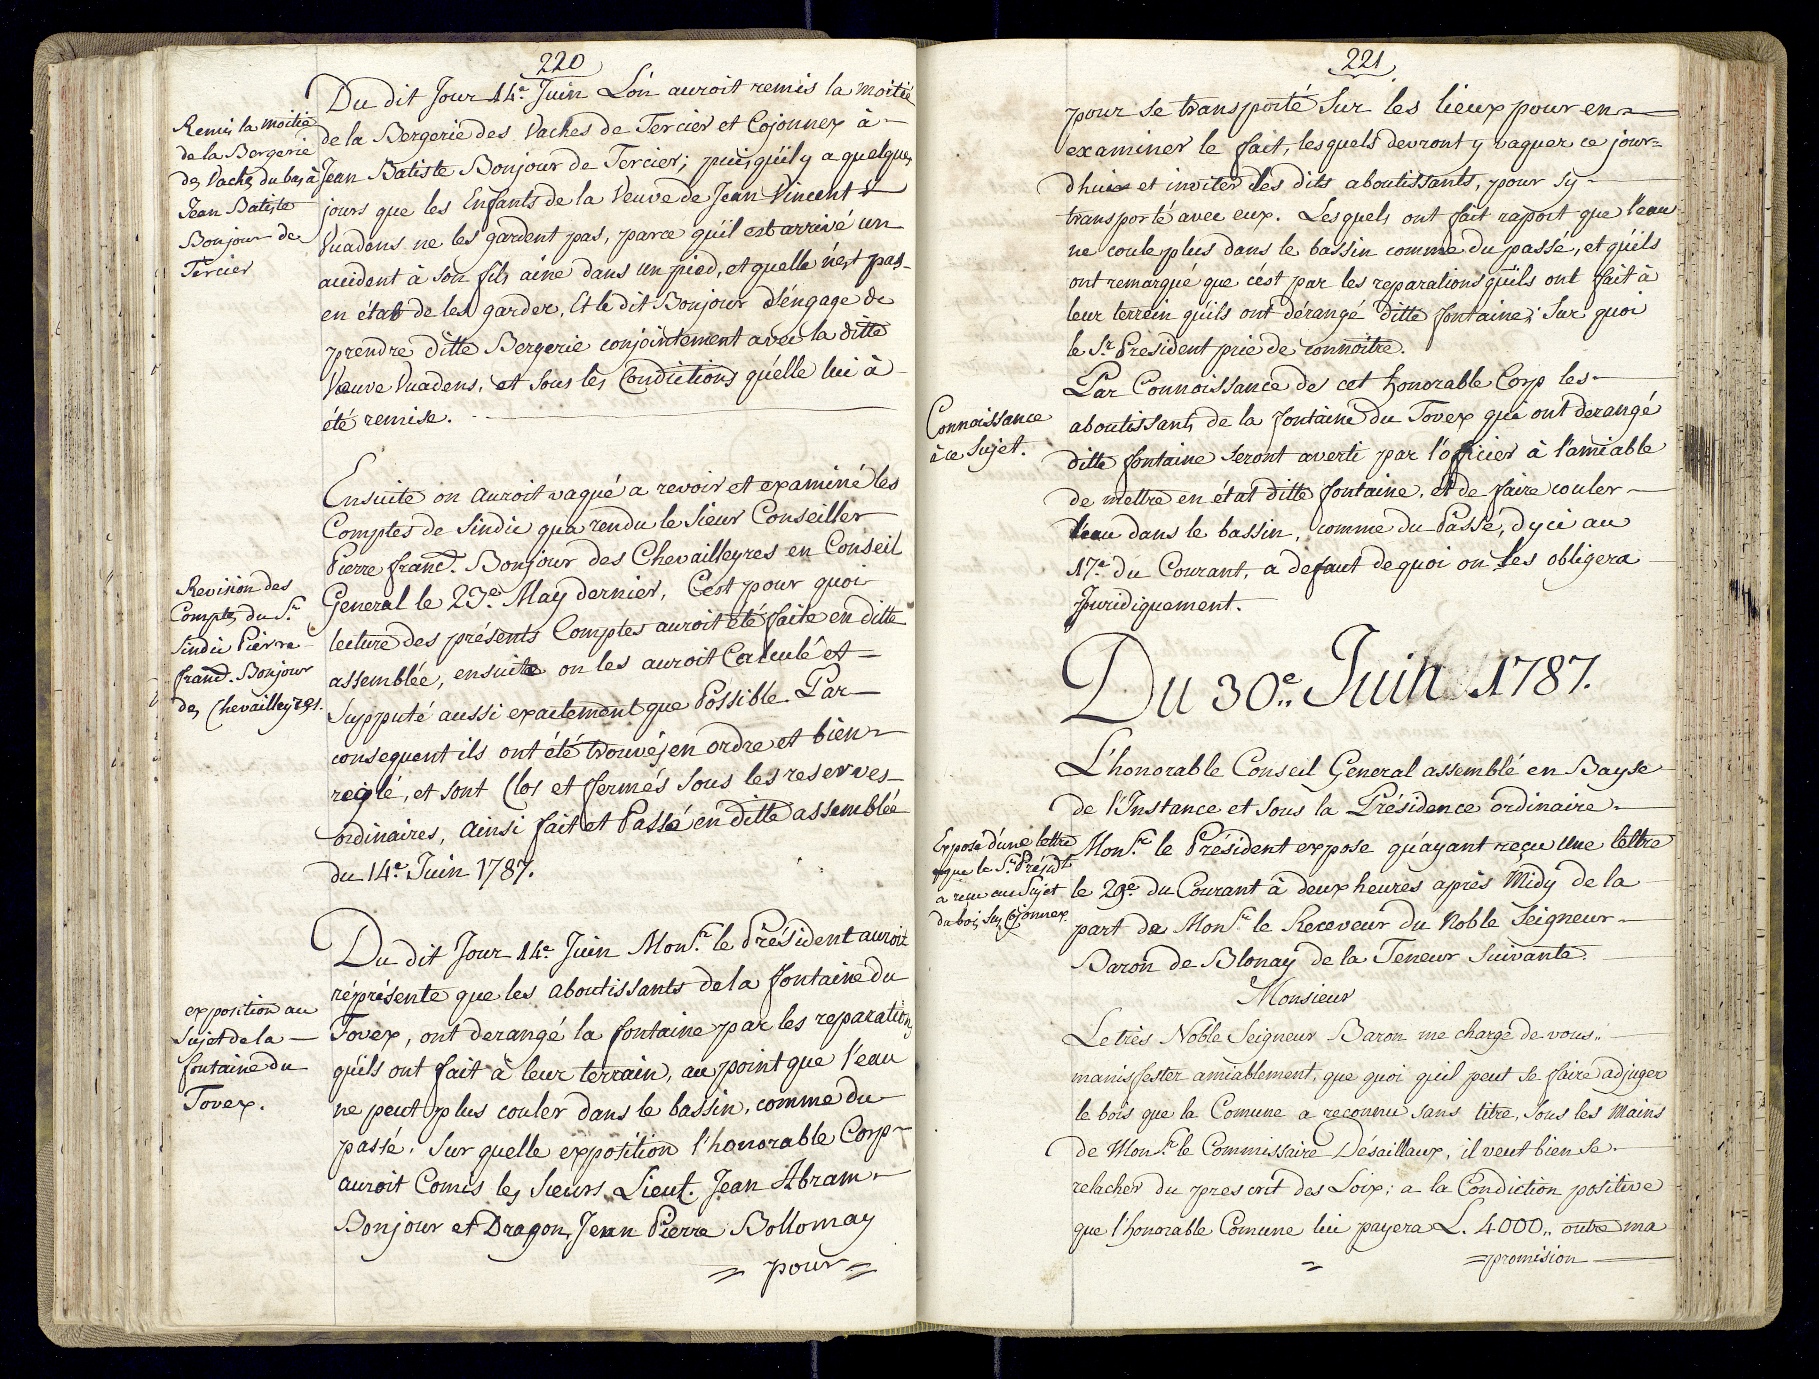 220
Du dit Jour 14.e Juin L'on auroit remis la moitié
Remis la moitié
de la Bergerie
des Vaches du bas à
Jean Batiste
Bonjour de
Tercier
de la Bergerie des Vaches de Tercier et Cojonnex à
Jean Batiste Bonjour de Tercier; puis, qu'il y a quelques
jours que les Enfants de la Veuve de Jean Vincent
Vuadens ne les gardent pas, parce qu'il est arrivé un
accident à son fils ainé dans un pied, et quelle n'est pas
en état de les garder, Et le dit Bonjour s'engage de
prendre ditte Bergerie conjointement avec la ditte
Veuve Vuadens, et sous les Condictions qu'elle lui à
été remise.
Ensuite on auroit vaqué a revoir et examiné les
Comptes de Sindic qu'a rendu le Sieur Conseiller
Pierre franc̃. Bonjour des Chevailleyres en Conseil
Revision des
Comptes du S.r
Sindic Pierre
franc̃. Bonjour
des Chevailleyres.
General le 23.e May dernier, C'est pour quoi
lecture des présents Comptes auroit été faite en ditte
assemblée, ensuite on les auroit Calculé et
Supputé aussi exactement que Possible. Par
consequent ils ont été trouvés en ordre et bien
reiglé, et sont Clos et fermés sous les reserves
ordinaires, ainsi fait et Passé en ditte assemblée
du 14.e Juin 1787.
Du dit Jour 14.e Juin Mons.r le Président auroit
réprésente que les aboutissants de la fontaine du
exposition au
Sujet de la
fontaine du
Tovex.
Tovex, ont derangé la fontaine par les reparations
qu'ils ont fait à leur terrain, au point que l'eau
ne peut plus couler dans le bassin, comme du
passé. Sur quelle exposition l'honorable Corp
auroit Comis les Sieurs Lieut. Jean Abram
Bonjour et Dragon, Jean Pierre Bollomay
= pour =
221
pour se transporté Sur les lieux pour en
examiner le fait, lesquels devront y vaquer ce jour=
dhui et inviter les dits aboutissants, pour sy
transporté avec eux. Lesquels ont fait raport que l'eau
ne coule plus dans le bassin comme du passé, et qu'ils
ont remarqué que c'ést par les reparations qu'ils ont fait à
leur terrein qu'ils ont dérangé ditte fontaine; Sur quoi
le S.r President prie de connoitre.
Connoissance
à ce Sujet.
Par Connoissance de cet honorable Corp les
aboutissants de la fontaine du Tovex qui ont derangé
ditte fontaine seront averti par l'officier à l'amiable
de mettre en état ditte fontaine, et de faire couler
l'eau dans le bassin, comme du Passé, d'yci au
17.e du Courant, a defaut de quoi on les obligera
Juridiquement.
Du 30.e Juin 1787.
L'honorable Conseil General assemblé en Bayse
de l'Instance et sous la Présidence ordinaire.
Exposé d'une lettre
que le S.r Présid.t
a reçu au Sujet
du bois Sus, Cojonnex.
Mons.r le Président expose qu'ayant reçu une lettre
le 29.e du Courant à deux heures après Midy de la
part de Mons.r le Receveur du Noble Seigneur
Baron de Blonay de la Teneur Suivante.
Monsieur
Le très Noble Seigneur Baron me charge de vous
manisfester amiablement, que quoi qu'il peut se faire adjuger
le bois que la Comune a reconnu sans titre, sous les mains
de Mons.r le Commissaire Désaillaux, il veut bien se
relacher du prescrit des Loix; a la Condiction positive
que l'honorable Comune lui payera L. 4000,, outre ma
= promision